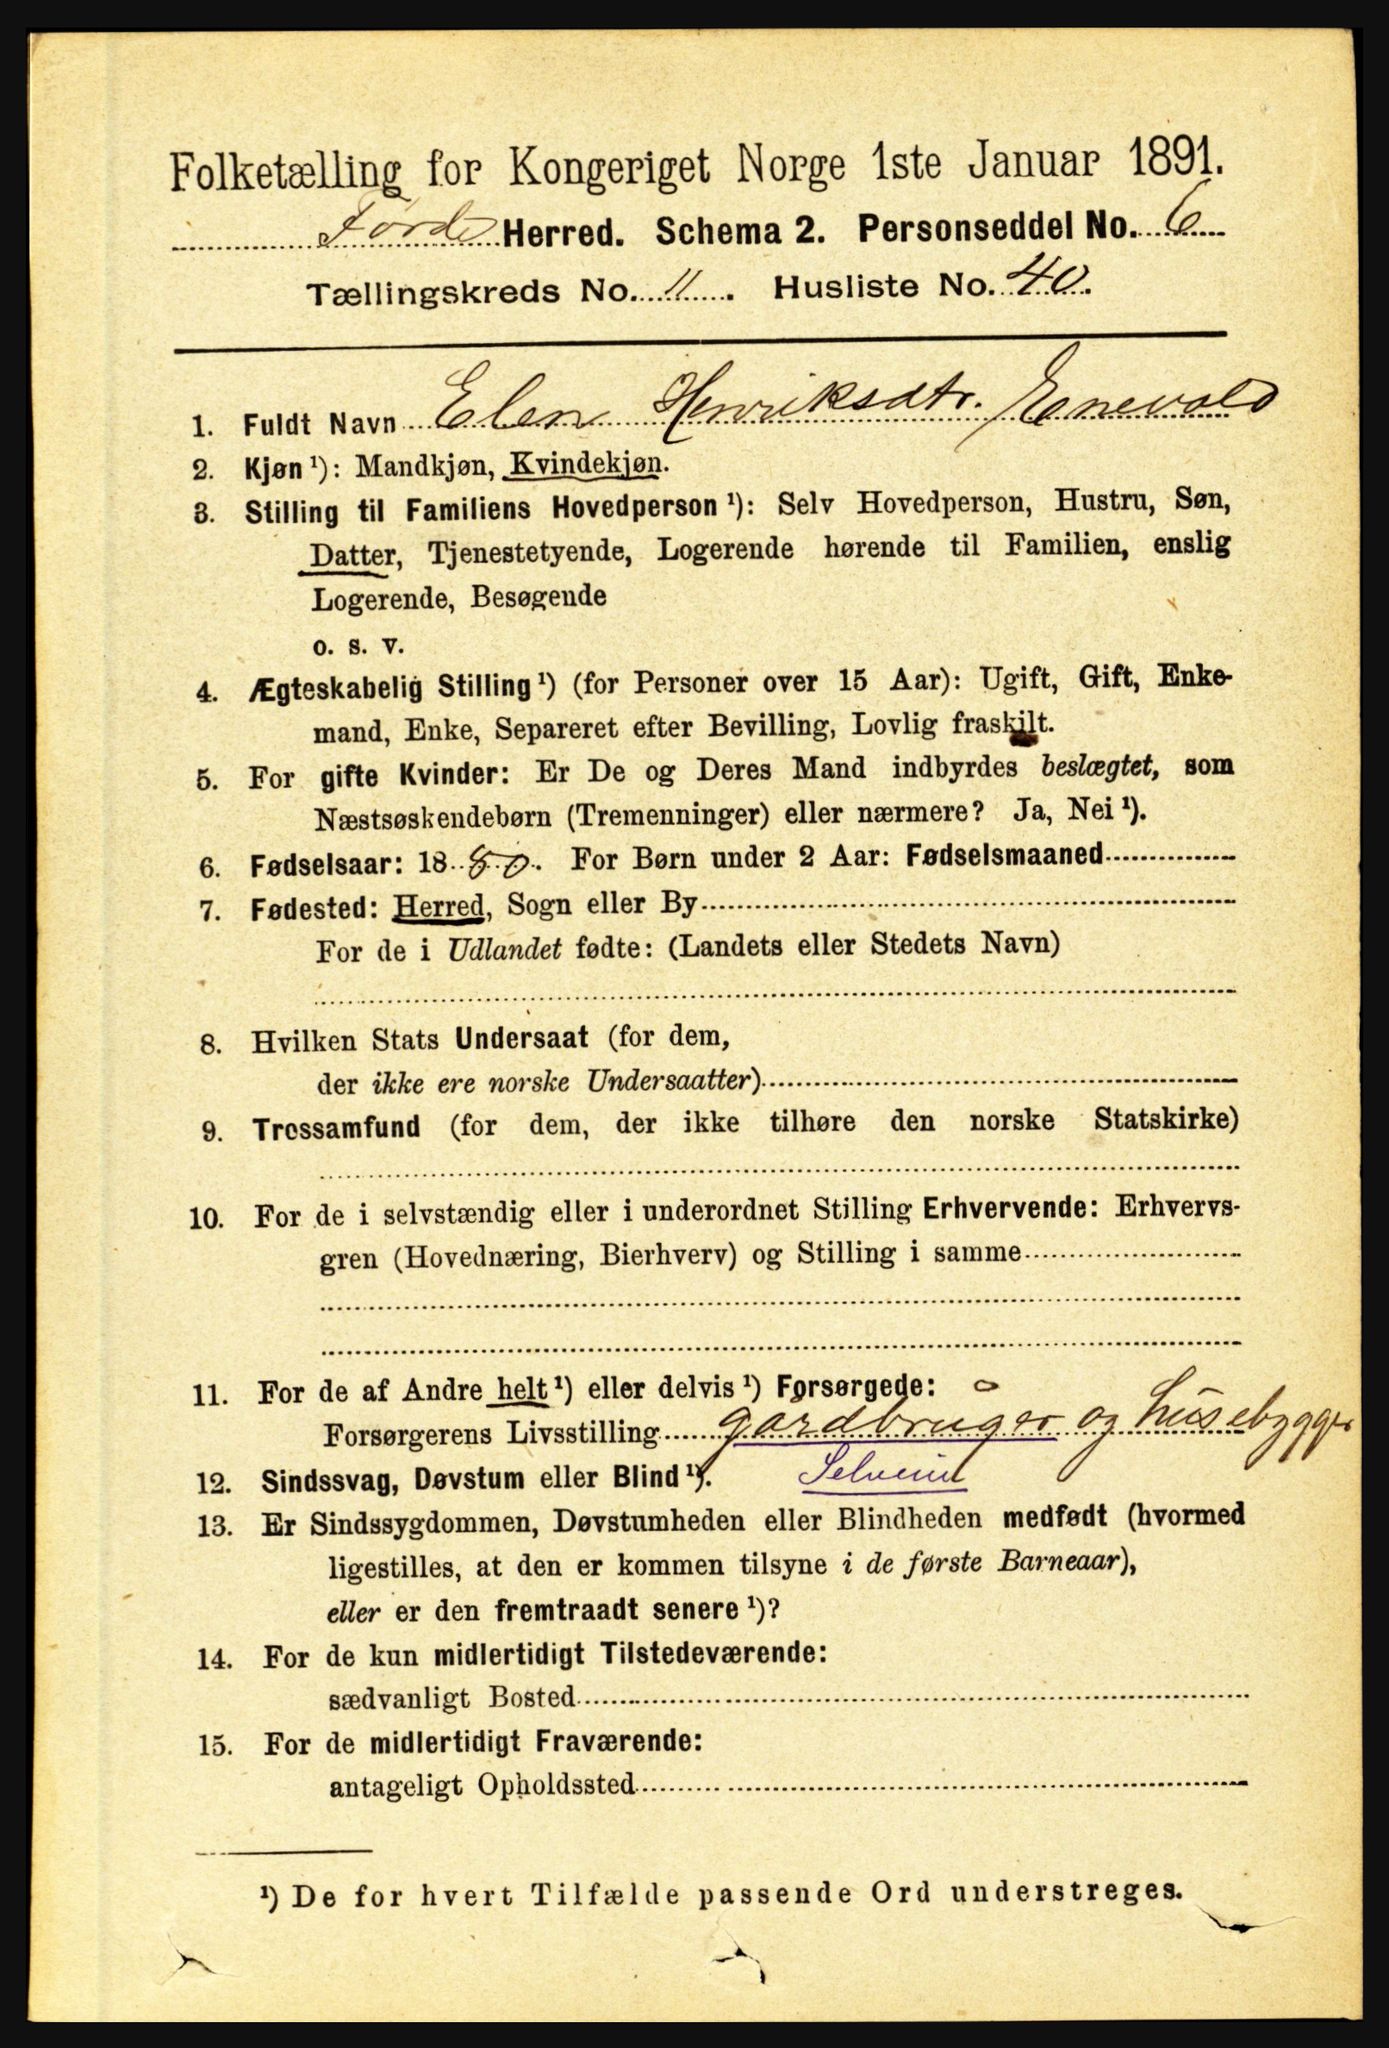 Folketælling for Kongeriget Norge 1ste Januar 1891.
Førde Herred. Schema 2. Personseddel No. 6
Tællingskreds No. 11. Husliste No. 40.
1. Fuldt Navn Elen Henriksdtr. Enevold
2. Kjøn ¹): Mandkjøn, Kvindekjøn.
3. Stilling til Familiens Hovedperson ¹): Selv Hovedperson, Hustru, Søn,
Datter, Tjenestetyende, Logerende hørende til Familien, enslig
Logerende, Besøgende
o. s. v.
4. Ægteskabelig Stilling ¹) (for Personer over 15 Aar): Ugift, Gift, Enke-
mand, Enke, Separeret efter Bevilling, Lovlig fraskilt.
5. For gifte Kvinder: Er De og Deres Mand indbyrdes beslægtet, som
Næstsøskendebørn (Tremenninger) eller nærmere? Ja, Nei ¹).
6. Fødselsaar: 1880. For Børn under 2 Aar: Fødselsmaaned
7. Fødested: Herred, Sogn eller By
For de i Udlandet fødte: (Landets eller Stedets Navn)
8. Hvilken Stats Undersaat (for dem,
der ikke ere norske Undersaatter)
9. Trossamfund (for dem, der ikke tilhøre den norske Statskirke)
10. For de i selvstændig eller i underordnet Stilling Erhvervende: Erhvervs-
gren (Hovednæring, Bierhverv) og Stilling i samme
11. For de af Andre helt ¹) eller delvis ¹) Forsørgede:
Forsørgerens Livsstilling gårdbruger og husebygger
12. Sindssvag, Døvstum eller Blind ¹). Selveier
13. Er Sindssygdommen, Døvstumheden eller Blindheden medfødt (hvormed
ligestilles, at den er kommen tilsyne i de første Barneaar),
eller er den fremtraadt senere ¹)?
14. For de kun midlertidigt Tilstedeværende:
sædvanligt Bosted
15. For de midlertidigt Fraværende:
antageligt Opholdssted
¹) De for hvert Tilfælde passende Ord understreges.